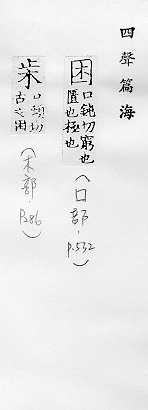 四聲篇海
困 口鈍切窮也
匱也極也
(口部, p.532)
朱 口頓切
古文困
(木部, p.86)